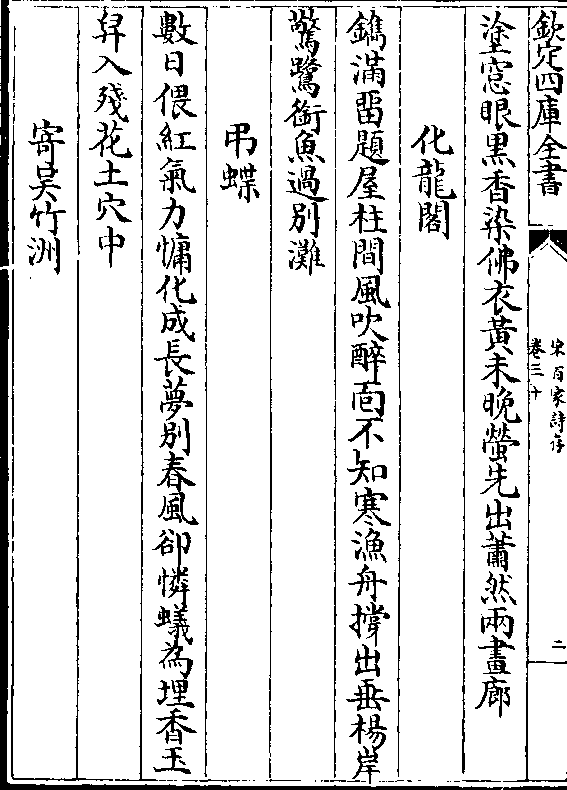 欽定四庫全書
宋百家詩存
卷三十
二
塗窓眼黒香染佛衣黃未晚螢先出蕭然兩畫廊
化龍閣
鐫滿留題屋柱間風吹醉面不知寒漁舟撐出垂楊岸
驚鷺銜魚過別灘
弔蝶
數日偎紅氣力慵化成長夢別春風卻憐蟻為埋香玉
舁入殘花土穴中
寄吳竹洲